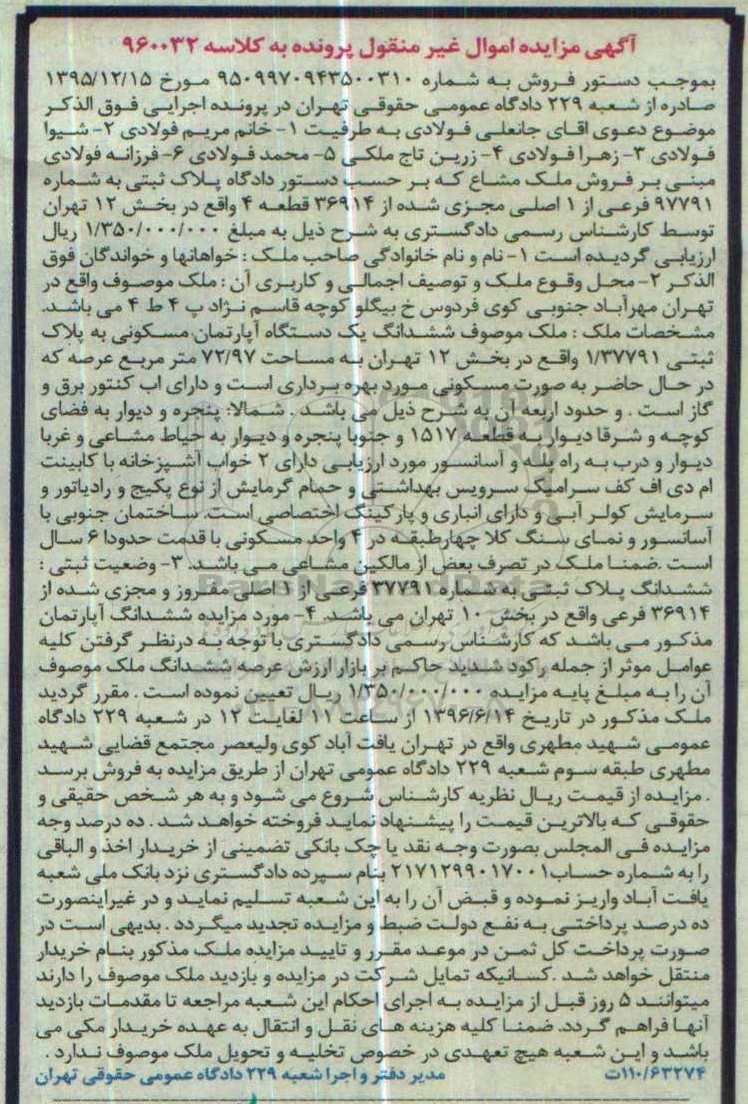 آگهی مزایده اموال غیر منقول پرونده به کلاسه ۹۶۰۰۳۲
بموجب دستور فروش به شماره ۹۵۰۹۹۷۰۹۴۳۵۰۰۳۱۰ مورخ ۱۳۹۵/۱۲/۱۵
صادره از شعبه ۲۲۹ دادگاه عمومی حقوقی تهران در پرونده اجرایی فوق الذکر
موضوع دعوی اقای جانعلی فولادی به طرفیت ۱- خانم مریم فولادی ۲- شیوا
فولادی ۳- زهرا فولادی ۴- زرین تاج ملکی ۵- محمد فولادی ۶- فرزانه فولادی
مبنی بر فروش ملک مشاع که بر حسب دستور دادگاه پلاک ثبتی به شماره
۹۷۷۹۱ فرعی از ۱ اصلی مجزی شده از ۳۶۹۱۴ قطعه ۴ واقع در بخش ۱۲ تهران
توسط کارشناس رسمی دادگستری به شرح ذیل به مبلغ ۱/۳۵۰/۰۰۰/۰۰۰ ریال
ارزیابی گردیده است ۱- نام و نام خانوادگی صاحب ملک : خواهانها و خواندگان فوق
الذکر ۲- محل وقوع ملک و توصیف اجمالی و کاربری آن : ملک موصوف واقع در
تهران مهرآباد جنوبی کوی فردوس خ بیگلو کوچه قاسم نژاد پ ۴ ط ۴ می باشد.
مشخصات ملک : ملک موصوف ششدانگ یک دستگاه آپارتمان مسکونی به پلاک
ثبتی ۱/۳۷۷۹۱ واقع در بخش ۱۲ تهران به مساحت ۷۲/۹۷ متر مربع عرصه که
در حال حاضر به صورت مسکونی مورد بهره برداری است و دارای اب کنتور برق و
گاز است . و حدود اربعه آن به شرح ذیل می باشد . شمالا: پنجره و دیوار به فضای
کوچه و شرقا دیوار به قطعه ۱۵۱۷ و جنوبا پنجره و دیوار به حیاط مشاعی و غربا
دیوار و درب به راه پله و آسانسور مورد ارزیابی دارای ۲ خواب آشپزخانه با کابینت
ام دی اف کف سرامیک سرویس بهداشتی و حمام گرمایش از نوع پکیج و رادیاتور و
سرمایش کولر آبی و دارای انباری و پارکینگ اختصاصی است. ساختمان جنوبی با
آسانسور و نمای سنگ کلا چهارطبقه در ۴ واحد مسکونی با قدمت حدودا ۶ سال
است .ضمنا ملک در تصرف بعض از مالکین مشاعی می باشد. ۳- وضعیت ثبتی :
ششدانگ پلاک ثبتی به شماره ۳۷۷۹۱ فرعی از ۱ اصلی مفروز و مجزی شده از
۳۶۹۱۴ فرعی واقع در بخش ۱۰ تهران می باشد. ۴- مورد مزایده ششدانگ آپارتمان
مذکور می باشد که کارشناس رسمی دادگستری با توجه به درنظر گرفتن کلیه
عوامل موثر از جمله رکود شدید حاکم بر بازار ارزش عرصه ششدانگ ملک موصوف
آن را به مبلغ پایه مزایده ۱/۳۵۰/۰۰۰/۰۰۰ ریال تعیین نموده است . مقرر گردید
ملک مذکور در تاریخ ۱۳۹۶/۶/۱۴ از ساعت ۱۱ لغایت ۱۲ در شعبه ۲۲۹ دادگاه
عمومی شهید مطهری واقع در تهران یافت آباد کوی ولیعصر مجتمع قضایی شهید
مطهری طبقه سوم شعبه ۲۲۹ دادگاه عمومی تهران از طریق مزایده به فروش برسد
. مزایده از قیمت ریال نظریه کارشناس شروع می شود و به هر شخص حقیقی و
حقوقی که بالاترین قیمت را پیشنهاد نماید فروخته خواهد شد . ده درصد وجه
مزایده فی المجلس بصورت وجه نقد یا چک بانکی تضمینی از خریدار اخذ و الباقی
را به شماره حساب۲۱۷۱۲۹۹۰۱۷۰۰۱ بنام سپرده دادگستری نزد بانک ملی شعبه
یافت آباد واریز نموده و قبض آن را به این شعبه تسلیم نماید و در غیراینصورت
ده درصد پرداختی به نفع دولت ضبط و مزایده تجدید میگردد . بدیهی است در
صورت پرداخت کل ثمن در موعد مقرر و تایید مزایده ملک مذکور بنام خریدار
منتقل خواهد شد .کسانیکه تمایل شرکت در مزایده و بازدید ملک موصوف را دارند
میتوانند ۵ روز قبل از مزایده به اجرای احکام این شعبه مراجعه تا مقدمات بازدید
آنها فراهم گردد. ضمنا کلیه هزینه های نقل و انتقال به عهده خریدار مکی می
باشد و این شعبه هیچ تعهدی در خصوص تخلیه و تحویل ملک موصوف ندارد .
۱۱۰/۶۳۲۷۴ت مدیر دفتر و اجرا شعبه ۲۲۹ دادگاه عمومی حقوقی تهران